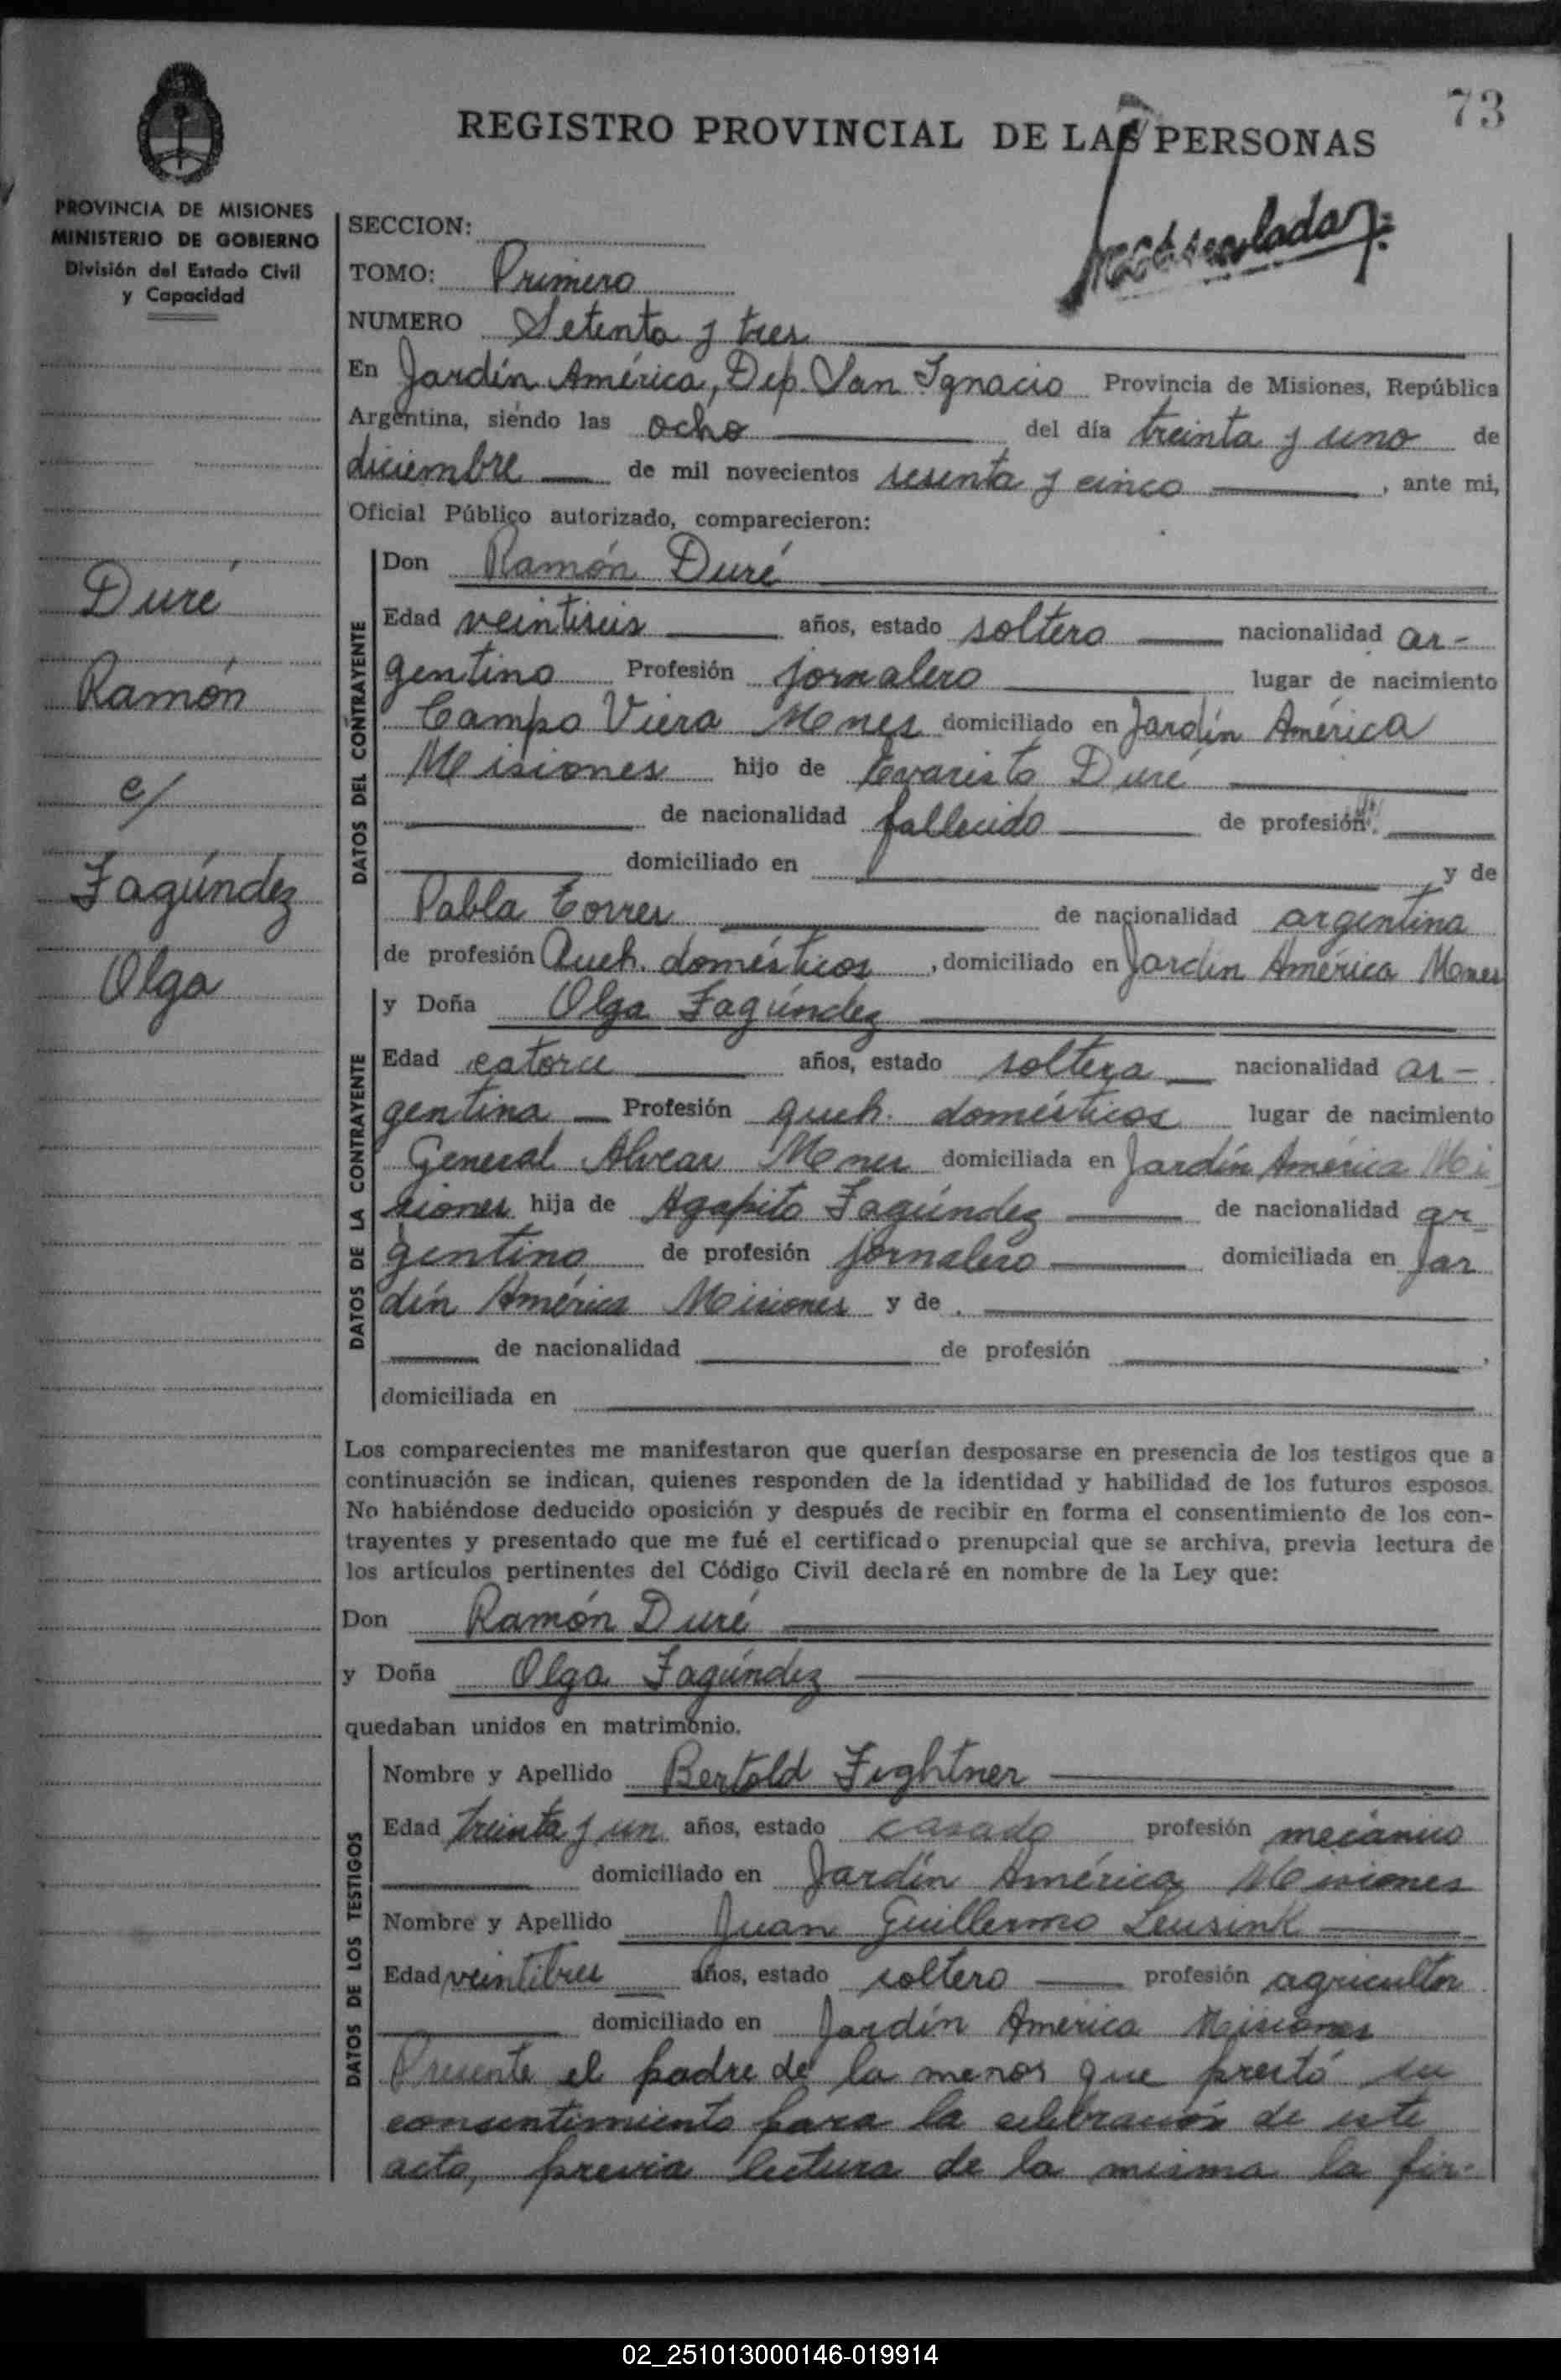 73
REGISTRO PROVINCIAL DE LAS PERSONAS
PROVINCIA DE MISIONES
MINISTERIO DE GOBIERNO
División del Estado Civil
y Capacidad
SECCION:
TOMO: Primero
NUMERO Setenta y tres
En Jardín América, Dep. San Ignacio Provincia de Misiones, República
Argentina, siendo las ocho del día treinta y uno de
diciembre de mil novecientos sesenta y cinco, ante mi,
Oficial Público autorizado, comparecieron:
Duré
Ramón
c/
Fagúndez
Olga
DATOS DEL CONTRAYENTE
Don Ramón Duré
Edad veintiseis años, estado soltero nacionalidad ar-
gentino Profesión jornalero lugar de nacimiento
Campo Viera Mones domiciliado en Jardín América
Misiones hijo de Evaristo Duré
de nacionalidad fallecido de profesión
domiciliado en y de
Pabla Torres de nacionalidad argentina
de profesión Queh. domésticos, domiciliado en Jardín América Mones
DATOS DE LA CONTRAYENTE
y Doña Olga Fagúndez
Edad catorce años, estado soltera nacionalidad ar-
gentina Profesión queh. domésticos lugar de nacimiento
General Alvear Mones domiciliada en Jardín América Mi
siones hija de Agapito Fagúndez de nacionalidad ar
gentino de profesión jornalero domiciliada en Jar
dín América Misiones y de
de nacionalidad de profesión ,
domiciliada en
Los comparecientes me manifestaron que querían desposarse en presencia de los testigos que a
continuación se indican, quienes responden de la identidad y habilidad de los futuros esposos.
No habiéndose deducido oposición y después de recibir en forma el consentimiento de los con-
trayentes y presentado que me fué el certificado prenupcial que se archiva, previa lectura de
los artículos pertinentes del Código Civil declaré en nombre de la Ley que:
Don Ramón Duré
y Doña Olga Fagúndez
quedaban unidos en matrimonio.
DATOS DE LOS TESTIGOS
Nombre y Apellido Bertold Fightner
Edad treinta y un años, estado casado profesión mecánico
domiciliado en Jardín América Misiones
Nombre y Apellido Juan Guillermo Leusink
Edad veintitres años, estado soltero profesión agricultor
domiciliado en Jardín América Misiones
Presente el padre de la menor que prestó su
consentimiento para la celebración de este
acto, previa lectura de la misma la fir-
02_251013000146-019914